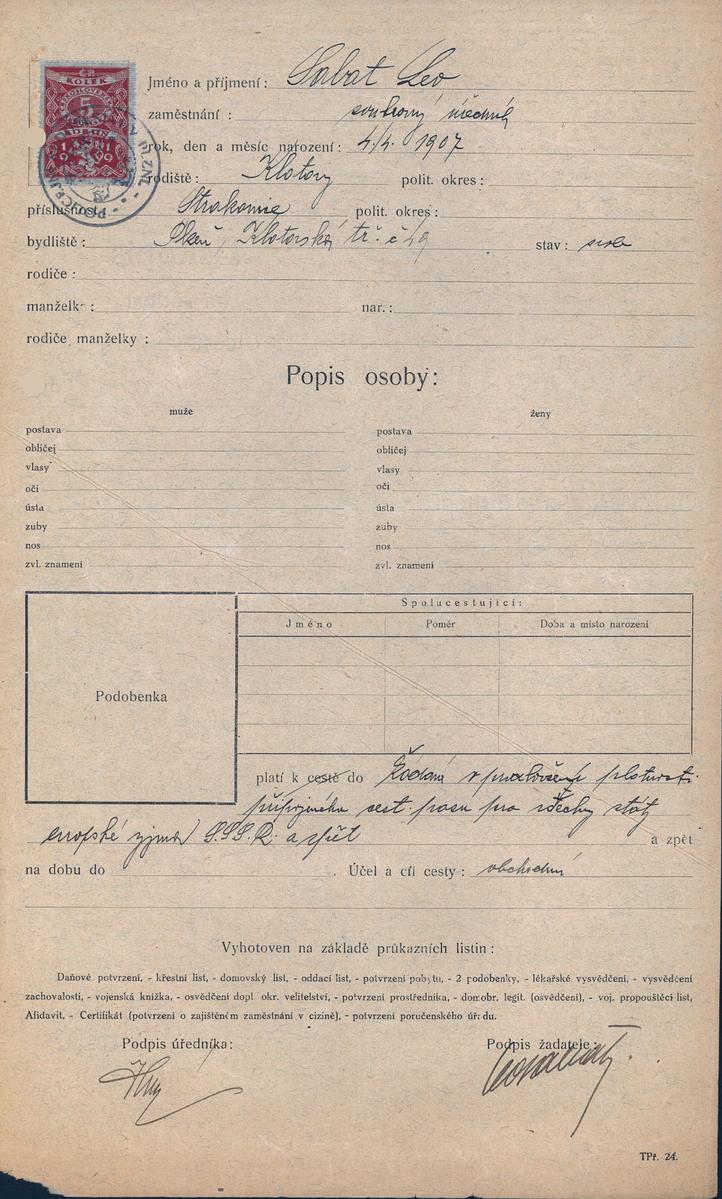 KOLEK
5
Jméno a příjmení : Sabat Leo
zaměstnání : soukromý úředník
rok, den a měsíc narození : 4./4. 1907
rodiště : Klatovy polit. okres :
příslušnost Strakonice polit. okres :
bydliště : Plzeň, Klatovská tř. č 49 stav : svob
rodiče :
manželka : nar. :
rodiče manželky :
Popis osoby:
muže ženy
postava postava
obličej obličej
vlasy vlasy
oči oči
ústa ústa
zuby zuby
nos nos
zvl. znamení zvl. znamení
Spolucestující:
Jméno Poměr Doba a místo narození
Podobenka
platí k cestě do Žádám v prodloužení platnosti
připojeného cest. pasu pro všechny státy
evropské vyjma S.S.S.R. a zpět a zpět
na dobu do . Účel a cíl cesty : obchodní
Vyhotoven na základě průkazních listin :
Daňové potvrzení, - křestní list, - domovský list, - oddací list, - potvrzení pobytu, - 2 podobenky, - lékařské vysvědčení, - vysvědčení
zachovalosti, - vojenská knížka, - osvědčení dopl. okr. velitelství, - potvrzení prostředníka, - domobr. legit. (osvědčení), - voj. propouštěcí list,
Afidavit, - Certifikát (potvrzení o zajištěném zaměstnání v cizině), - potvrzení poručenského úřadu.
Podpis úředníka: Podpis žadatele:
TPř. 24.